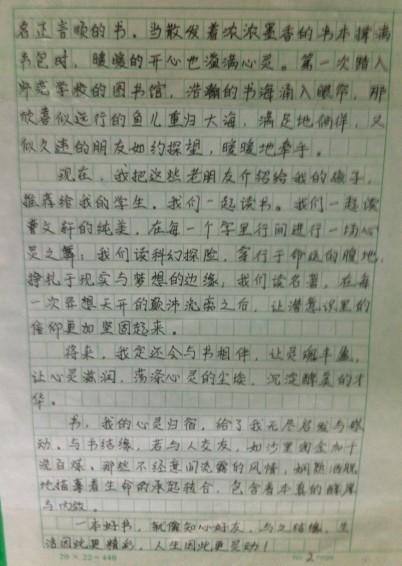 名正言顺的书，当散发着浓浓墨香的书本撑满
书包时，暖暖的开心也溢满心灵。第一次踏入
师范学校的图书馆，浩瀚的书海涌入眼帘，那
欣喜似远行的鱼儿重归大海，满足地徜徉，又
似久违的朋友如约探望，暖暖地牵手。
现在，我把这些老朋友介绍给我的孩子，
推荐给我的学生，我们一起读书。我们一起读
曹文轩的纯美，在每一个字里行间进行一场心
灵之舞；我们读科幻探险，穿行于神秘的腹地，
挣扎于现实与梦想的边缘；我们读名著，在每
一次异想天开的颠沛流离之后，让潜意识里的
信仰更加坚固起来。
将来，我定还会与书相伴，让灵魂丰盈，
让心灵滋润，荡涤心灵的尘埃，沉淀醇美的才
华。
书，我的心灵归宿，给了我无尽启发与感
动。与书结缘，若与人交友，如沙里淘金加千
浇百炼，那些不经意间流露的风情，娴熟洒脱
地描摹着生命的承起转合，包含着本真的醇厚
与内敛。
一本好书，就像知心好友，与之结缘，生
活因此更精彩，人生因此更灵动！
20 × 22 = 440
2